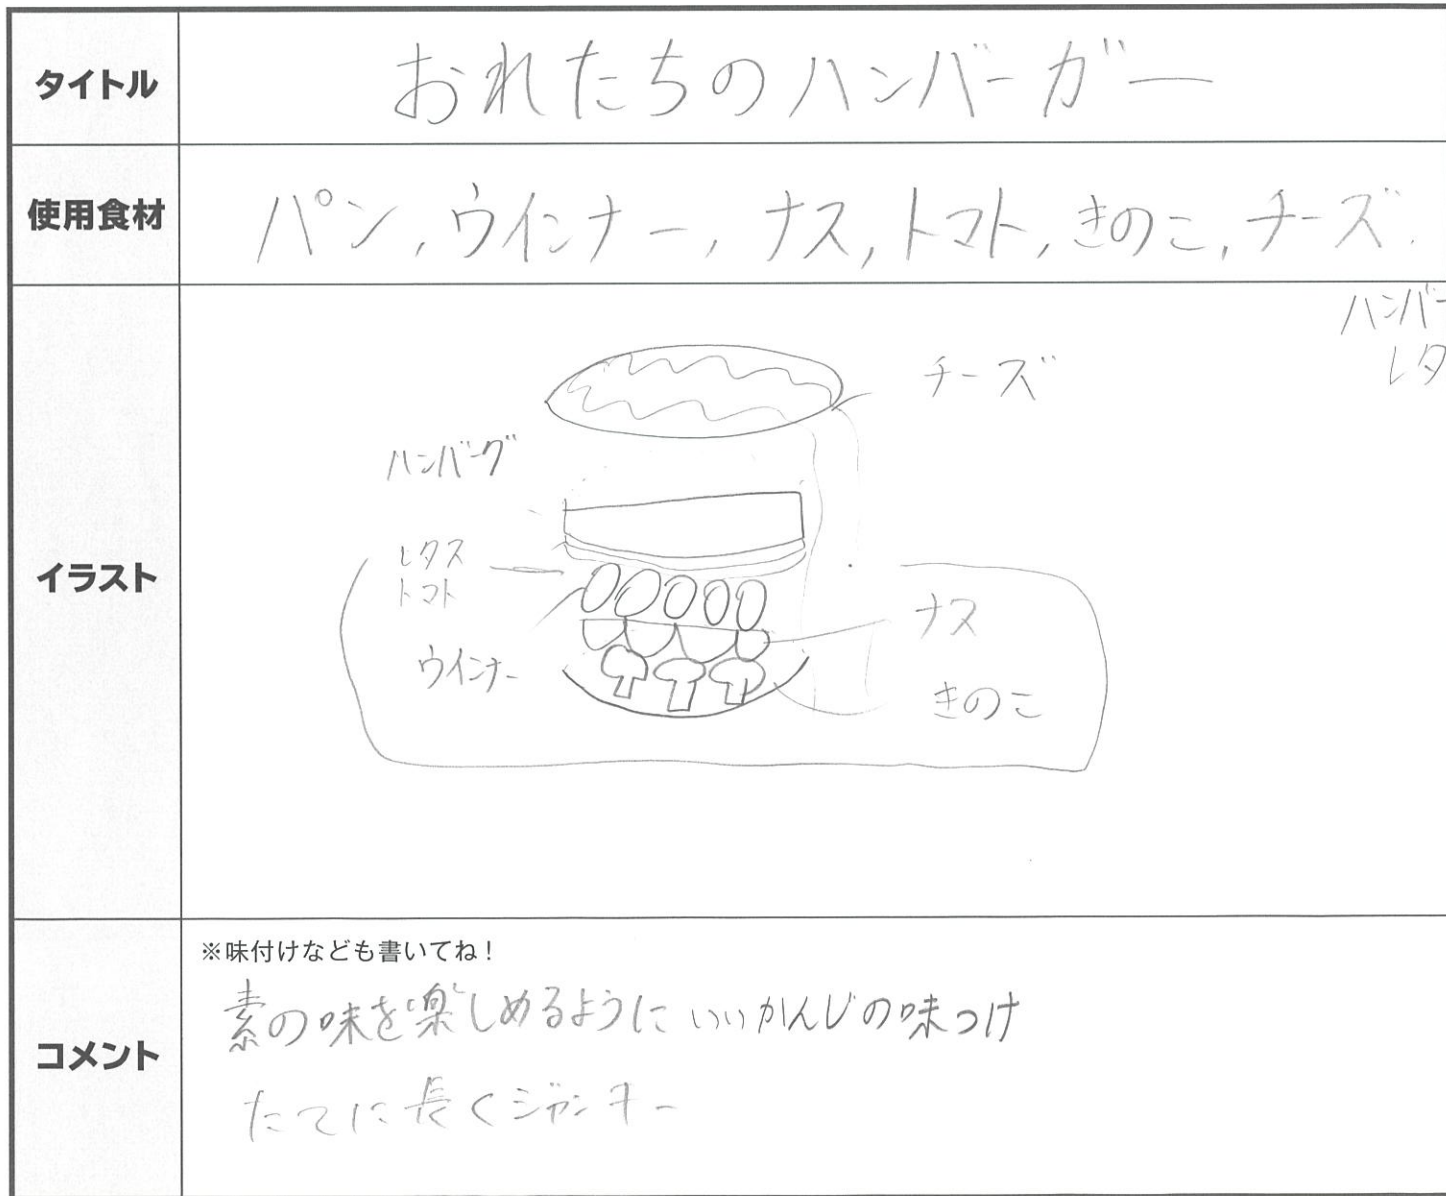 タイトル
おれたちのハンバーガー
使用食材
パン,ウインナー,ナス,トマト,きのこ,チーズ.
ハンバー
レタ
イラスト
チーズ
ハンバーグ
レタス
トマト
ウインナー
ナス
きのこ
コメント
※味付けなども書いてね!
素の味を楽しめるようにいいかんじの味つけ
たてに長くジャンキー